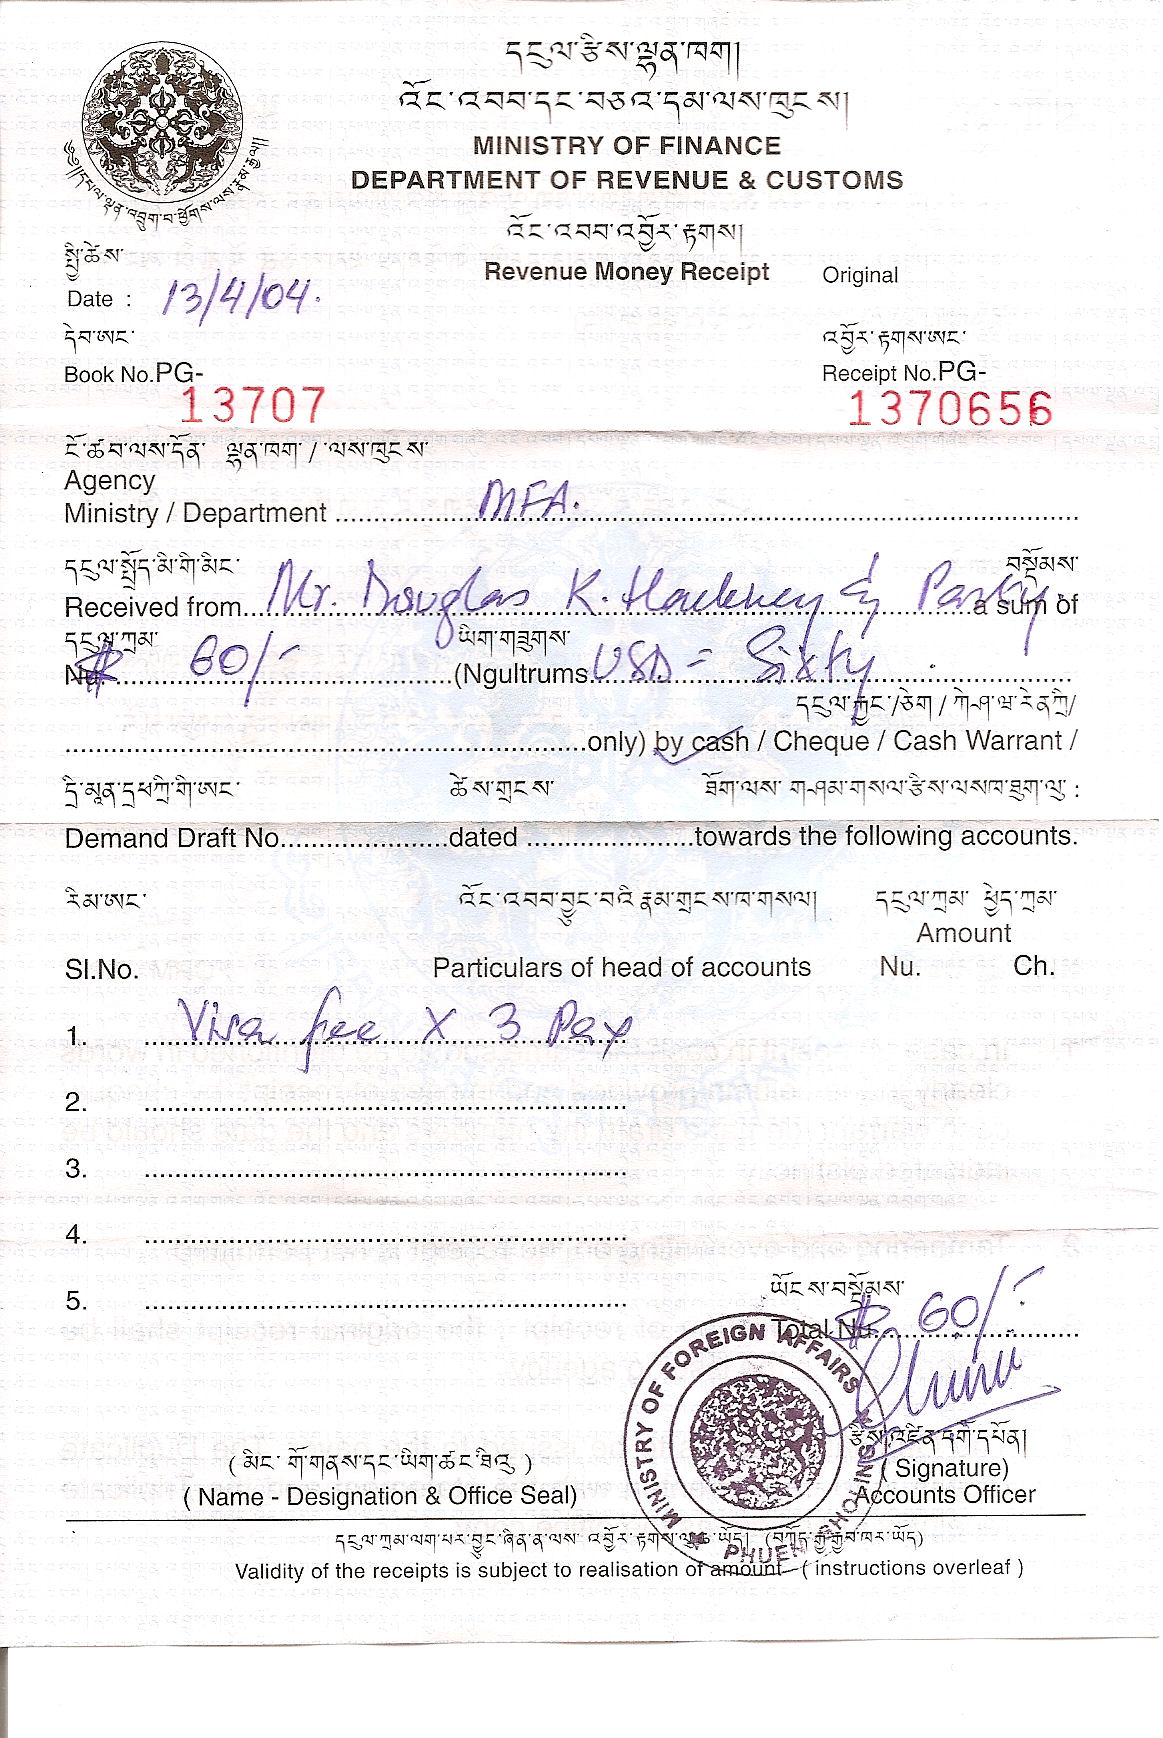 དངུལ་རྩིས་ལྷན་ཁག།
འོང་འབབ་དང་བཅའ་དམ་ལས་ཁུངས།
MINISTRY OF FINANCE
DEPARTMENT OF REVENUE & CUSTOMS
འོང་འབབ་འབྱོར་རྟགས།
Revenue Money Receipt Original
སྤྱི་ཚེས་
Date : 13/4/04.
དེབ་ཨང་ འབྱོར་རྟགས་ཨང་
Book No.PG- Receipt No.PG-
13707 1370656
ངོ་ཚབ་ལས་དོན་ ལྷན་ཁག་ / ལས་ཁུངས་
Agency
Ministry / Department MFA.
དངུལ་སྤྲོད་མི་གི་མིང་ བསྡོམས་
Received from Mr. Douglas K. Hackney & Party a sum of
དངུལ་ཀྲམ་ ཡིག་གཟུགས་
Nu. $ 60/- (Ngultrums USD = Sixty
དངུལ་རྐྱང་/ཅེག / ཀེ་ཤ་ཝ་རེནཊི/
only) by cash / Cheque / Cash Warrant /
ཌི་མཱན་ཌྲཕཊི་གི་ཨང་ ཚེས་གྲངས་ ཐོག་ལས་ གཤམ་གསལ་རྩིས་ལས་ཁ་ཐུག་ལུ་ :
Demand Draft No. dated towards the following accounts.
རིམ་ཨང་ འོང་འབབ་བྱུང་བའི་རྣམ་གྲངས་ཁ་གསལ། དངུལ་ཀྲམ་ ཕྱེད་ཀྲམ་
Amount
Sl.No. Particulars of head of accounts Nu. Ch.
1. Visa fee X 3 Pax
2.
3.
4.
5.
ཡོངས་བསྡོམས་
Total Nu. $ 60/-
MINISTRY OF FOREIGN AFFAIRS
རྩིས་འཛིན་འགོ་དཔོན།
( མིང་ གོ་གནས་དང་ཡིག་ཚང་ཐིའུ་ ) ( Signature)
( Name - Designation & Office Seal) Accounts Officer
Validity of the receipts is subject to realisation of amount ( instructions overleaf )